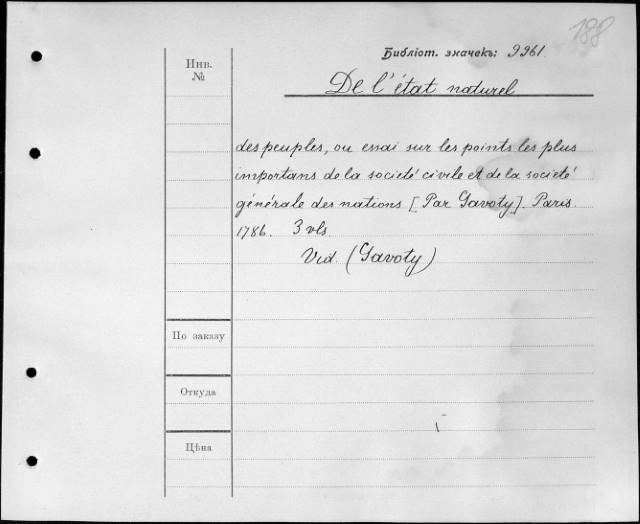 188
Библіот. значекъ: 9961.
Инв.
№
De l'état naturel
des peuples, ou essai sur les points les plus
importans de la société civile et de la société
générale des nations [Par Gavoty]. Paris.
1786. 3 vls
Vid. (Gavoty)
По заказу
Откуда
Цѣна